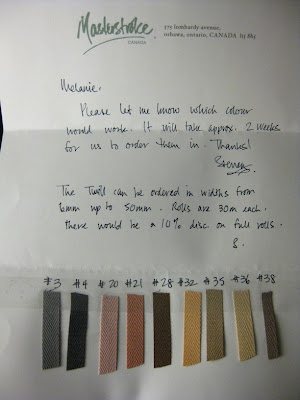 Masterstroke
CANADA
575 lombardy avenue,
oshawa, ontario, CANADA
Melanie,
Please let me know which colour
would work. It will take approx. 2 weeks
for us to order them in. Thanks!
Steven
The Twill can be ordered in widths from
6mm up to 50mm. Rolls are 30m each.
there would be a 10% disc on full rolls.
S.
#3 #4 #20 #21 #28 #32 #35 #36 #38